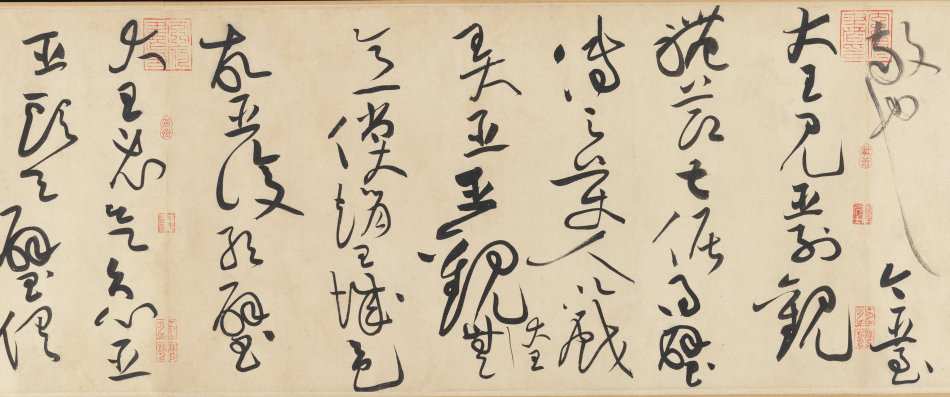 敬也今臣至
大王見臣列觀
禮節甚倨得璧
傳之美人以戲
弄臣臣觀大王無
意償趙王城邑
故臣復取璧
大王必欲急臣
臣頭今璧俱